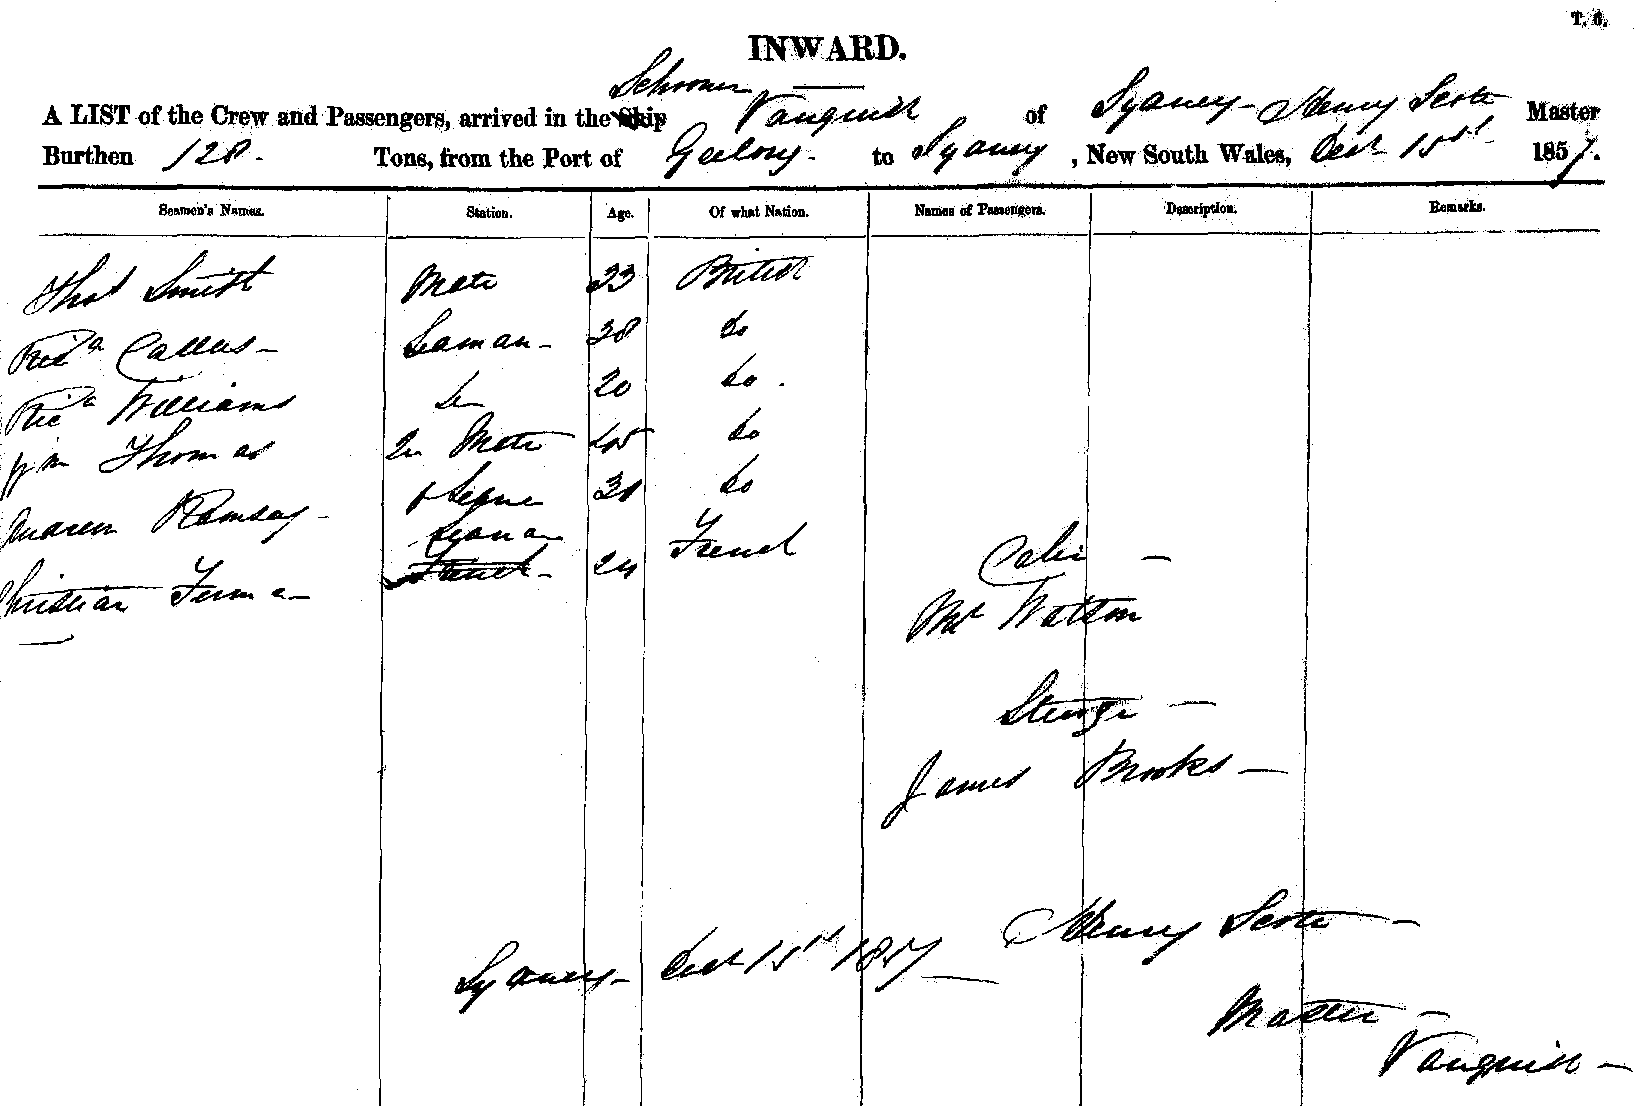 T. 6.
INWARD.
Schooner
A LIST of the Crew and Passengers, arrived in the Ship Vanquish of Sydney - Henry Scott Master
Burthen 128. Tons, from the Port of Geelong. to Sydney, New South Wales, 15th 1857.
Seamen's Names. Station. Age. Of what Nation. Names of Passengers. Description. Remarks.
Thos Smith Mate 23 British
Callus - Seaman - 38 Do
Ricd Williams Do 20 Do.
Wm Thomas 2n Mate 45 Do
Andrew Ramsay - Do
Christian French
Cabin -
Mr Watson
Steerage -
James Brooks -
Henry Scott -
Sydney - 15th 1857
Master -
Vanquish -